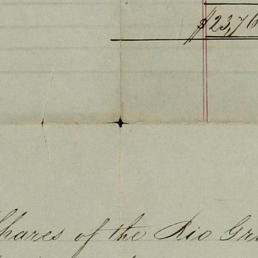 $23,76
Shares of the Rio Gr